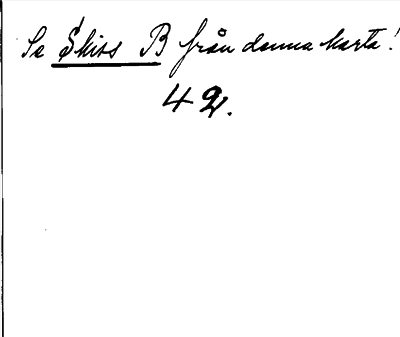 Se Skiss B från denna karta!
42.